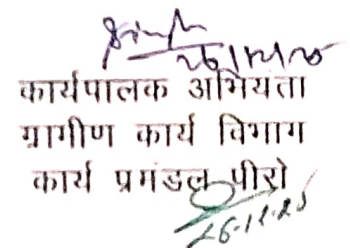 कार्यपालक अभियंता
ग्रामीण कार्य विभाग
कार्य प्रमंडल पीरो
26-12-25